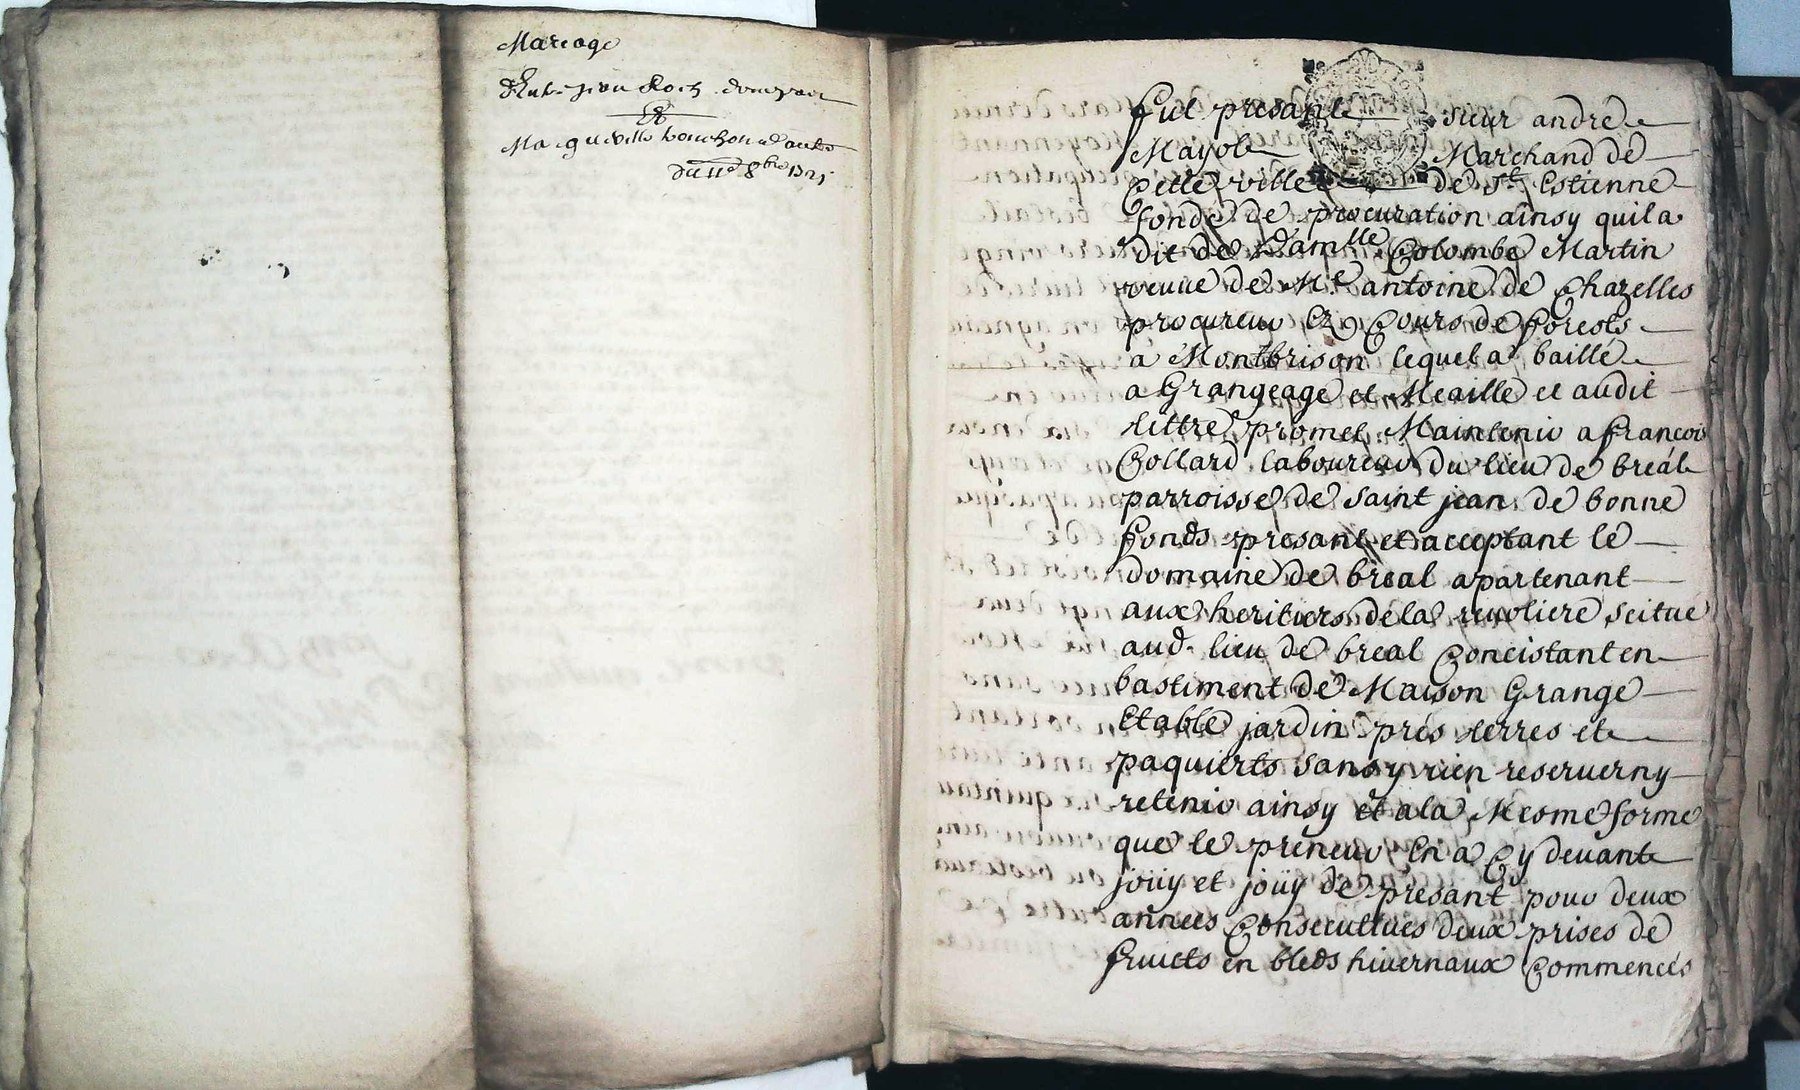 Mariage
d'Entre jean Roch
Et
Margueritte
du 11e 8bre 1721
fut presant sieur andre
Mayol Marchand de
cette ville de St Estienne
fondé de procuration ainsy quil a
dit de Damlle Colombe Martin
veuue de Me antoine de Chazelles
procureur Ez Cours de forests
a Montbrison lequel a baillé
a Grangeage et Meaille et audit
tittre promet Maintenir a francois
Collard laboureur du lieu de breal
parroisse de saint jean de bonne
fonds presant et acceptant le
domaine de breal apartenant
aux heritiers de la reuoliere scitué
aud. lieu de breal Concistant en
bastiment de Maison Grange
Etable jardin prés terres et
paquiérts sans y rien reseruer ny
retenir ainsy et a la Mesme forme
que le preneur En a Cy deuant
joüy et joüy de presant pour deux
années Consecutiues deux prises de
fruicts en bleds hiuernaux Commencés